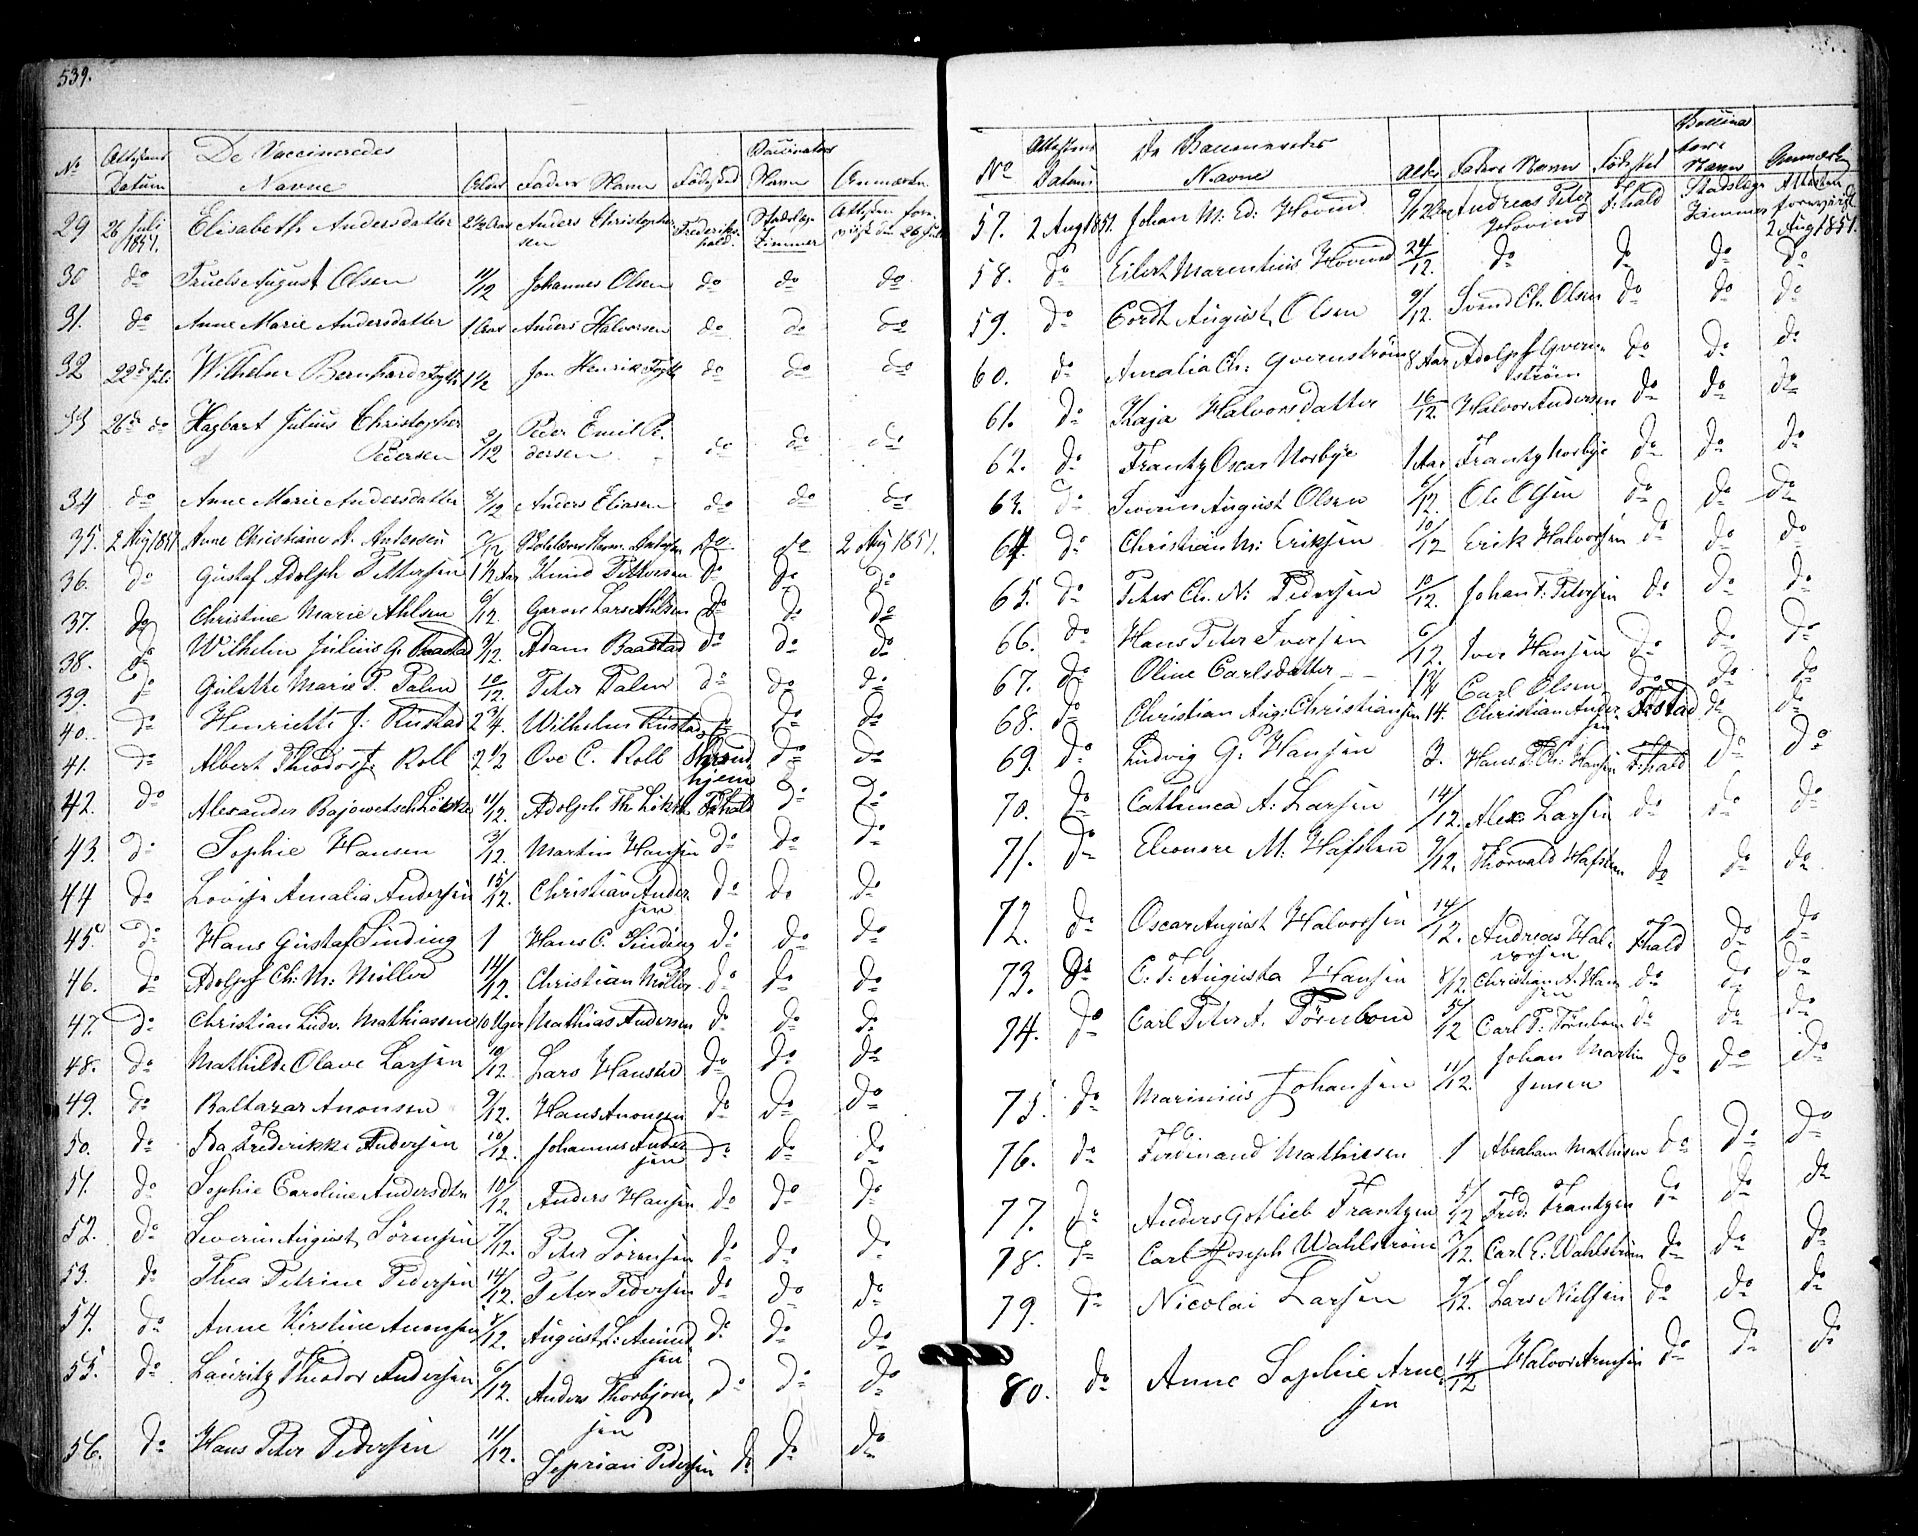 539.
No Attestens Datum De Vaccineredes Navne Alder Faders Navn Fødested Vaccinators Navn Anmærkn
29 26 Juli 1851. Elisabeth Andersdatter 2½ Aar Anders Christophersen Frederikshald. Stadslæge Zimmer
30 do Truels August Olsen 11/12 Johannes Olsen do do do
31. do Anne Marie Andersdatter 1 Aar Anders Halvorsen do do do
32 22de Juli Wilhelm Bernhard 1½ Jon Henrik do do do
33 26de do Hagbart Julius Christopher
Pedersen 9/12 Peder Emil Pedersen do do do
34 do Anne Marie Andersdatter 8/12 Anders Eliasen do do do
35. 2 Aug 1851 Anne Christiane A. Andersen 7/12 do do 2 Aug 1851.
36. do Gustaf Adolph Pettersen 1½ Aar Knud Pettersen do do do
37. do Christine Marie Ahlsen 6/12 Lars Ahlsen do do do
38. do Wilhelm Julius G. Baastad 9/12. Adam Baastad do do do
39. do Gulette Marie P. Palen 10/12. Peter Palen do do do
40. do Henriette J: Rustad 2¾ Wilhelm Rustad do do do
41. do Albert Theodor F. Roll 2½ Ove C. Roll Thrond-
hjem do do
42. do Alexander 11/12. Adolph Th. Fr:hald do do
43. do Sophie Hansen 3/12. Martin Hansen do do do
44 do Lovise Amalia Andersen 15/12. Christian Ander-
sen do do do
45. do Hans Gustaf Sinding 1 Hans C. Sinding do do do
46. do Adolph Ch: M: Møller 14/12. Christian Møller do do do
47. do Christian Ludv. Mathiassen 10 Uger Mathias Andersen do do do
48. do Mathilde Olave Larsen 10/12. Lars Hansen do do do
49. do Baltazar Anonsen 9/12. Hans Anonsen do do do
50. do Ida Frederikke Andersen 10/12. Johannes Ander-
sen do do do
51. do Sophie Caroline Andersdtr 10/12. Anders Hansen do do do
52. do Severin August Sørensen 7/12. Peter Sørensen do do do
53. do Thea Petrine Pedersen 14/12. Peter Pedersen do do do
54. do Anne Kirstine Anonsen 8/12. August L: Amund-
sen do do do
55. do Lauritz Theodor Andersen 6/12. Anders Thorbjørn-
sen do do do
56. do Hans Peter Pedersen 11/12. Seprian Pedersen do do do
No Attestens Datum De Vaccineredes Navne Alder Faders Navn Fødested Vaccinatorens Navn Anmærkn
57. 2 Aug 1851. Johan M: Ed: Hovind 9/12 Andreas Peter
Hovind F:hald Stadslæge Zimmer Attesten 2 Aug 1851.
58. do Eilert Marentius Hovind 24/12. do do do do
59. do Cordt August Olsen 9/12. Svend Ch. Olsen do do do
60. do Amalia Ch: Qvernstrøm 8 Aar Adolph Qvern-
strøm do do do
61. do Kaja Halvorsdatter 16/12. Halvor Andersen do do do
62. do Frantz Oscar Norbye 1 Aar Frantz Norbye do do do
63. do Severin August Olsen 5/12. Ole Olsen do do do
64. do Christian M: Eriksen 10/12 Erik Halvorsen do do do
65. do Peter Ch. N: Pedersen 10/12. Johan P: Petersen do do do
66. do Hans Peter Iversen 6/12. Iver Hansen do do do
67. do Oline Carlsdatter 1¼ Carl Olsen do do do
68. do Christian Aug: Christiansen 14. Christian Ander-
sen do do
69. do Ludvig G: Hansen 3. Hans P. Ch: Hansen F:hald do do
70. do Cathinca A: Larsen 14/12. Alex: Larsen do do do
71. do Eleonore M: Hafsten 9/12. Thorvald Hafsten do do do
72. do Oscar August Halvorsen 14/12. Andreas Hal-
vorsen F:hald do do
73. do C. F: Augusta Hansen 8/12. Christian A. Han-
sen do do do
74. do Carl Peter A. Tørnbom 5/12 Carl P: Tørnbom do do do
75. do Marinius Johansen 11/12. Johan Martin
Jensen do do do
76. do Ferdinand Mathiesen 1 Abraham Mathiesen do do do
77. do Anders Gotlieb Frantzen 5/12 Fred: Frantzen do do do
78. do Carl Joseph Wahlstrøm 7/12. Carl E: Wahlstrøm do do do
79. do Nicolai Larsen 7/12. Lars Nielsen do do do
80. do Anne Sophie Arne-
sen 14/12 Halvor Arnesen do do do